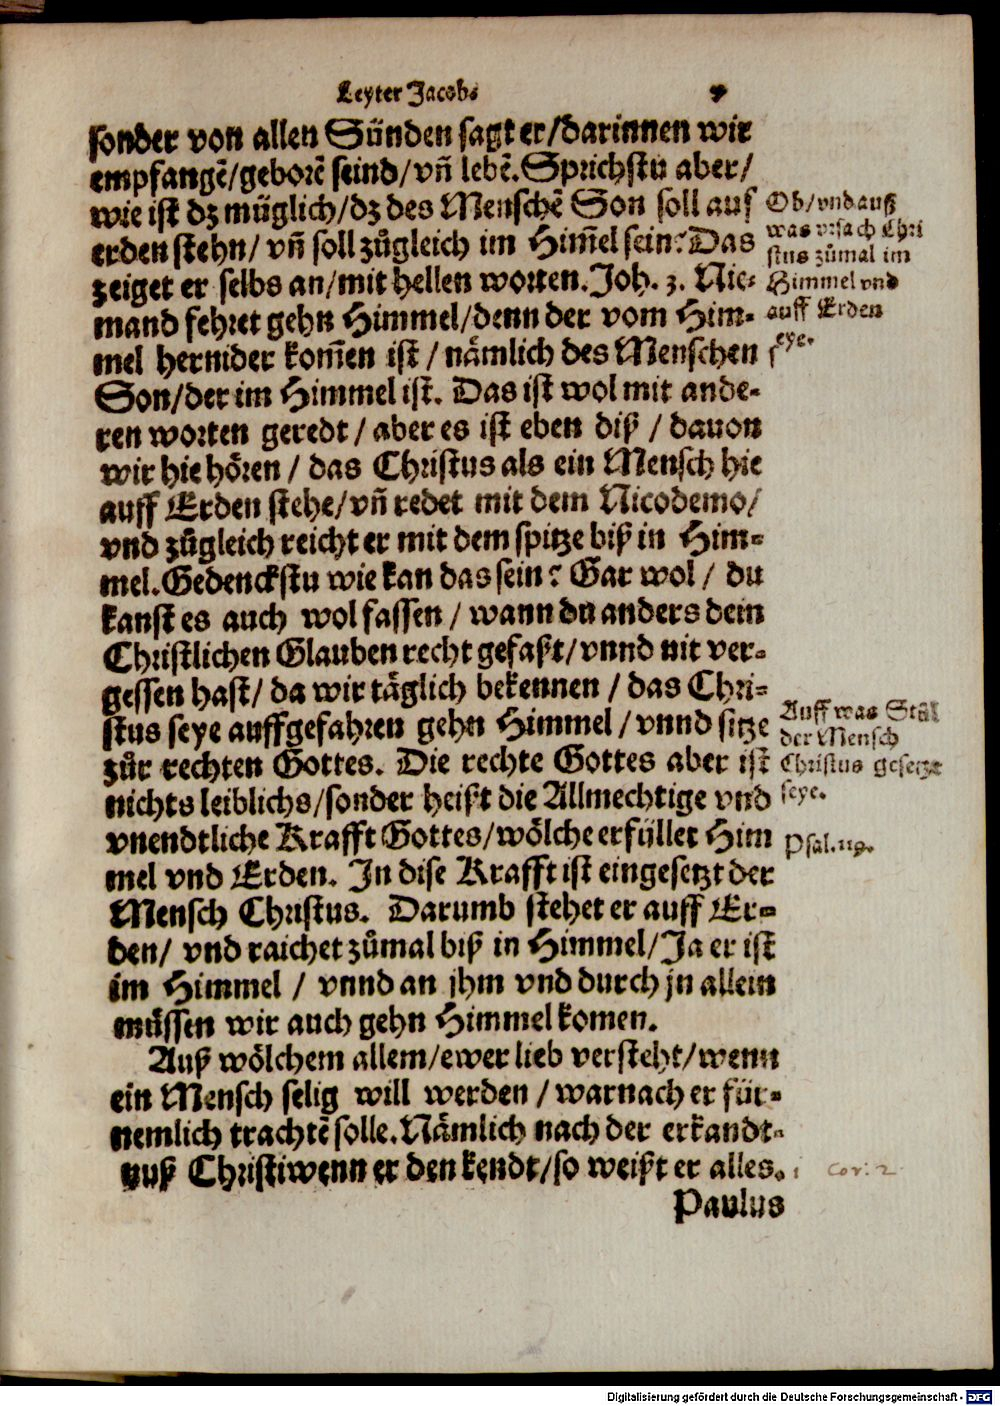 Leyter Jacobs
sonder von allen Sünden sagt er/darinnen wir
empfangē/geborē seind/vñ lebē. Sprichstu aber/
wie ist dz müglich/dz des Menschē Son soll auf
erden stehn/ vñ soll zůgleich im Him̃el sein? Das
zeiget er selbs an/mit hellen worten. Joh. 3. Nie-
mand fehret gehn Himmel/denn der vom Him-
mel hernider kom̃en ist / nämlich des Menschen
Son/der im Himmel ist. Das ist wol mit ande-
ren worten geredt / aber es ist eben diß / dauon
wir hie hören / das Christus als ein Mensch hie
auff Erden stehe/vñ redet mit dem Nicodemo/
vnd zůgleich reicht er mit dem spitze biß in Him-
mel. Gedenckstu wie kan das sein? Gar wol / du
kanst es auch wol fassen / wann du anders dein
Christlichen Glauben recht gefaßt/vnnd nit ver-
gessen hast/ da wir täglich bekennen / das Chri-
stus seye auffgefahren gehn Himmel / vnnd sitze
zůr rechten Gottes. Die rechte Gottes aber ist
nichts leiblichs/sonder heißt die Allmechtige vnd
vnendtliche Krafft Gottes/wölche erfüllet Him
mel vnd Erden. In dise Krafft ist eingesetzt der
Mensch Christus. Darumb stehet er auff Er-
den/ vnd raichet zůmal biß in Himmel/Ja er ist
im Himmel / vnnd an jhm vnd durch jn allein
müssen wir auch gehn Himmel komen.
Auß wölchem allem/ewer lieb versteht/wenn
ein Mensch selig will werden / warnach er für-
nemlich trachtē solle. Nämlich nach der erkandt-
nuß Christi wenn er den kendt/so weißt er alles.
Paulus
Ob/vnd auß
was vrsach Chri
stus zůmal im
Himmel vnd
auff Erden
seye.
Auff was Stůl
der Mensch
Christus gesetzt
seye.
Psal.
1 Cor: 2
Digitalisierung gefördert durch die Deutsche Forschungsgemeinschaft - DFG